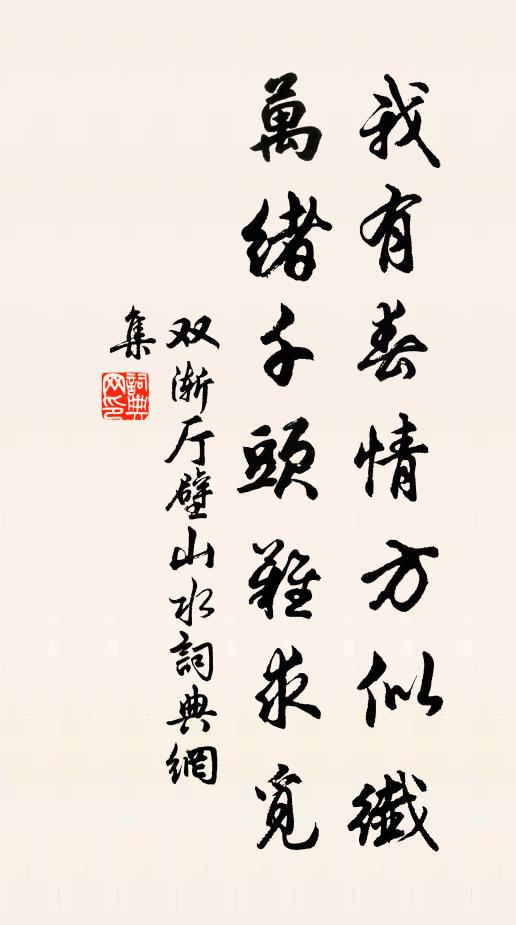 我有春情方似纖
萬緒千頭難求覓
双漸厅壁山水詞典網
集
詞典网印